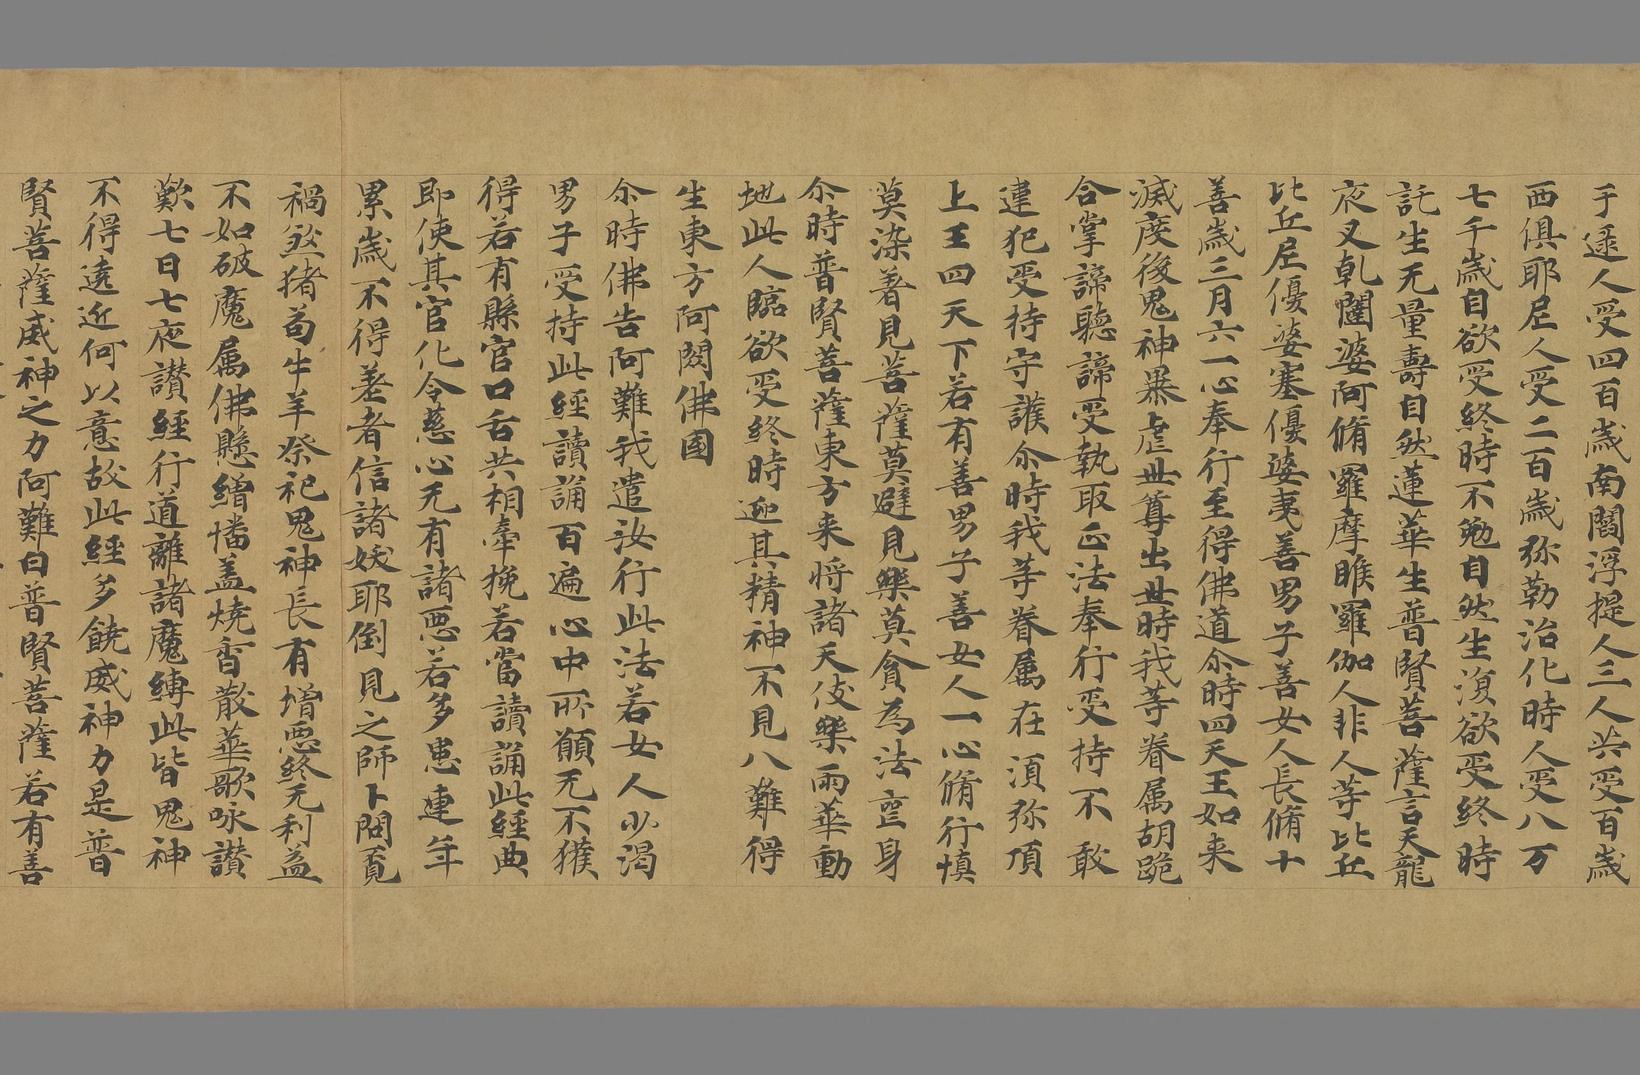 于逯人受四百歳南閻浮提人三人共受百歳
西俱耶尼人受二百歳弥勒治化時人受八万
七千歳自欲受終時不勉自然生須欲受終時
託生无量壽自然蓮華生普賢菩薩言天龍
夜叉乹闥婆阿脩羅摩睺羅伽人非人等比丘
比丘尼優婆塞優婆夷善男子善女人長脩十
善歳三月六一心奉行至得佛道尒時四天王如来
滅度後鬼神暴虐世尊出世時我等眷属胡跪
合掌諦聽諦受執取正法奉行受持不敢
違犯受待守護尒時我等眷属在湏弥頂
上王四天下若有善男子善女人一心脩行慎
莫染著見菩薩莫避見樂莫貪為法亡身
尒時普賢菩薩東方来将諸天伎樂雨華動
地此人臨欲受終時迎其精神不見八難得
生東方阿閦佛国
尒時佛告阿難我遣汝行此法若女人必渴
男子受持此經讀誦百遍心中所願无不獲
得若有縣官口舌共相牽挽若當讀誦此經典
即使其官化令慈心无有諸悪若多患連年
累歳不得差者信諸妖耶倒見之師卜問覓
禍煞猪苟牛羊祭祀鬼神長有增悪終无利益
不如破魔属佛懸繒幡盖燒香散華歌咏讃
歎七日七夜讃經行道離諸魔縛此皆鬼神
不得遠近何以意故此經多饒威神力是普
賢菩薩威神之力阿難白普賢菩薩若有善